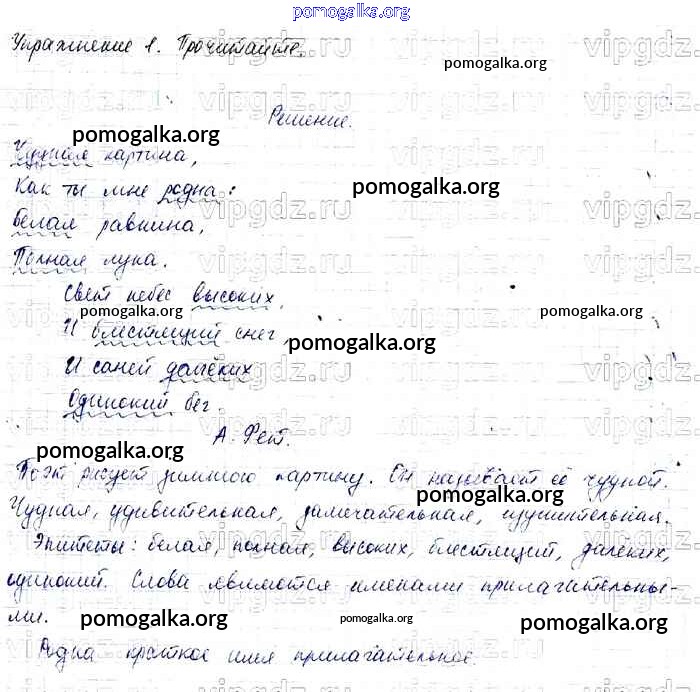 pomogalka.org
Упражнение 1. Прочитайте.
pomogalka.org
Решение.
pomogalka.org
Чудная картина,
Как ты мне родна:
pomogalka.org
Белая равнина,
Полная луна.
Свет небес высоких,
И блестящий снег,
pomogalka.org
И саней далёких
Одинокий бег.
А. Фет.
pomogalka.org
Поэт рисует зимнюю картину. Он называет её чудной.
pomogalka.org
Чудная, удивительная, замечательная, изумительная.
Эпитеты: белая, полная, высоких, блестящий, далёких,
одинокий. Слова являются именами прилагательны-
ми.
pomogalka.org
pomogalka.org
pomogalka.org
Родна краткое имя прилагательное.